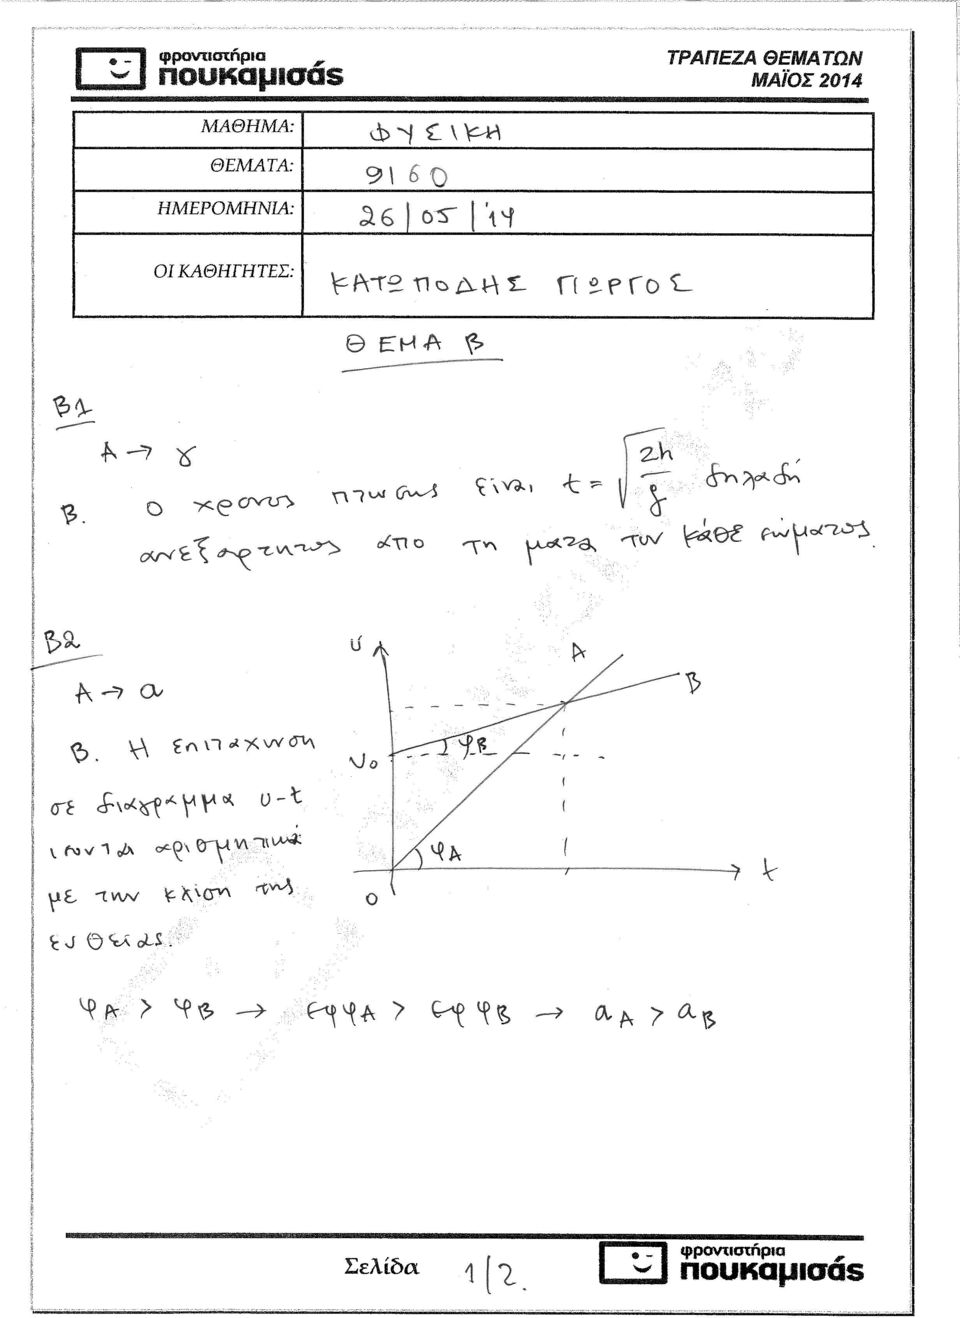 φροντιστήρια
πουκαμισάς
ΤΡΑΠΕΖΑ ΘΕΜΑΤΩΝ
ΜΑΪΟΣ 2014
ΜΑΘΗΜΑ: ΦΥΣΙΚΗ
ΘΕΜΑΤΑ: 9160
ΗΜΕΡΟΜΗΝΙΑ: 26/05/'14
ΟΙ ΚΑΘΗΓΗΤΕΣ: ΚΑΤΩΠΟΔΗΣ ΓΙΩΡΓΟΣ
ΘΕΜΑ Β
Β1
Α → γ
Β. Ο χρονος πτωσης είναι t = √(2h/g) δηλαδή
ανεξαρτητος απο τη μαζα του κάθε σώματος.
Β2
Α → α
Β. Η επιταχυνση
σε διαγραμμα υ-t
ισουται αριθμητικά
με την κλίση της
ευθείας.
υ
Α
Β
υο
φΒ
φΑ
Ο
t
φΑ > φΒ → εφφΑ > εφφΒ → αΑ > αΒ
Σελίδα 1/2.
φροντιστήρια
πουκαμισάς